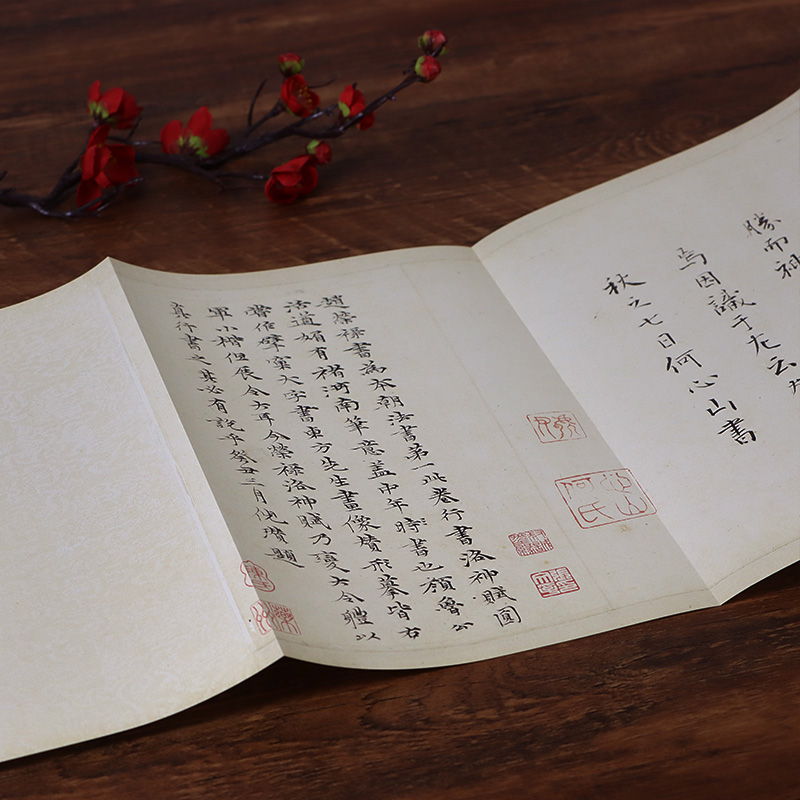 勝而神
焉因識于左云
秋之七日何心山書
趙榮祿書為本朝法書第一此卷行書洛神賦圓
活遒媚有褚河南筆意蓋中年時書也顏魯公
嘗作擘窠大字書東方先生畫像贊形摹皆右
軍小楷但展令大耳今榮祿洛神賦乃變大令體以
真行書之其必有說乎癸丑三月倪瓚題